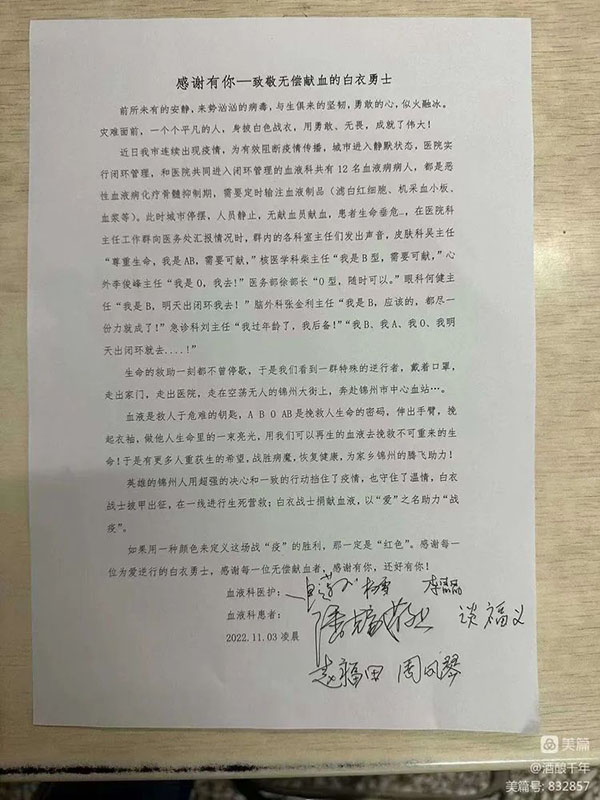 感谢有你—致敬无偿献血的白衣勇士
前所未有的安静，来势汹汹的病毒，与生俱来的坚韧，勇敢的心，似火融冰。
灾难面前，一个个平凡的人，身披白色战衣，用勇敢、无畏，成就了伟大！
近日我市连续出现疫情，为有效阻断疫情传播，城市进入静默状态，医院实
行闭环管理，和医院共同进入闭环管理的血液科共有 12 名血液病病人，都是恶
性血液病化疗骨髓抑制期，需要定时输注血液制品（滤白红细胞、机采血小板、
血浆等）。此时城市停摆，人员静止，无献血员献血，患者生命垂危…，在医院科
主任工作群向医务处汇报情况时，群内的各科室主任们发出声音，皮肤科吴主任
“尊重生命，我是 AB，需要可献，”核医学科柴主任“我是 B 型，需要可献，”心
外李俊峰主任“我是 O，我去！”医务部徐部长“O 型，随时可以。”眼科何健主
任“我是 B，明天出闭环我去！”脑外科张金利主任“我是 B，应该的，都尽一
份力就成了！”急诊科刘主任“我过年龄了，我后备！”“我 B、我 A、我 O、我明
天出闭环就去....！”
生命的救助一刻都不曾停歇，于是我们看到一群特殊的逆行者，戴着口罩，
走出家门，走出医院，走在空荡无人的锦州大街上，奔赴锦州市中心血站…。
血液是救人于危难的钥匙，A B O AB 是挽救人生命的密码，伸出手臂，挽
起衣袖，做他人生命里的一束亮光，用我们可以再生的血液去挽救不可重来的生
命！于是有更多人重获生的希望，战胜病魔，恢复健康，为家乡锦州的腾飞助力！
英雄的锦州人用超强的决心和一致的行动挡住了疫情，也守住了温情，白衣
战士披甲出征，在一线进行生死营救；白衣战士捐献血液，以“爱”之名助力“战
疫”。
如果用一种颜色来定义这场战“疫”的胜利，那一定是“红色”。感谢每一
位为爱逆行的白衣勇士，感谢每一位无偿献血者，感谢有你，还好有你！
血液科医护：
血液科患者： 谈福义
2022.11.03 凌晨
赵福田 周凤琴
美篇
@酒酿千年
美篇号: 832857